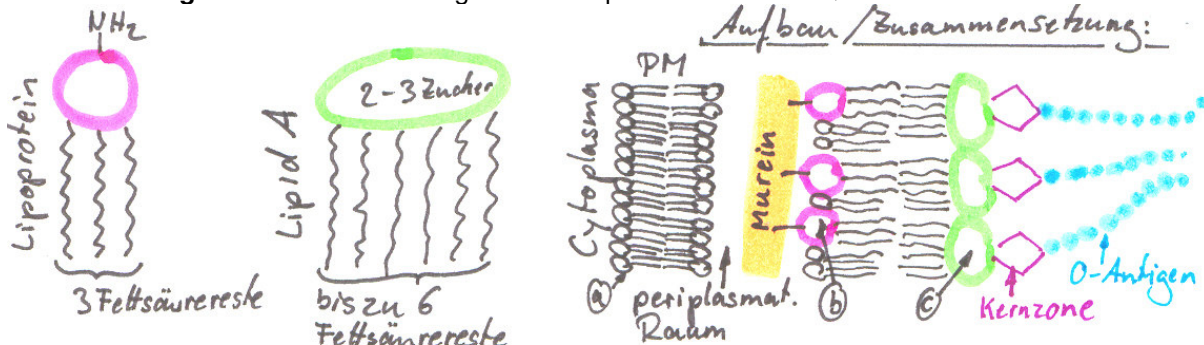 NH₂
Lipoprotein
3 Fettsäurereste
2-3 Zucker
Lipid A
bis zu 6
Fettsäurereste
Aufbau/Zusammensetzung:
PM
Cytoplasma
Murein
a
periplasmat.
Raum
b
c
Kernzone
O-Antigen